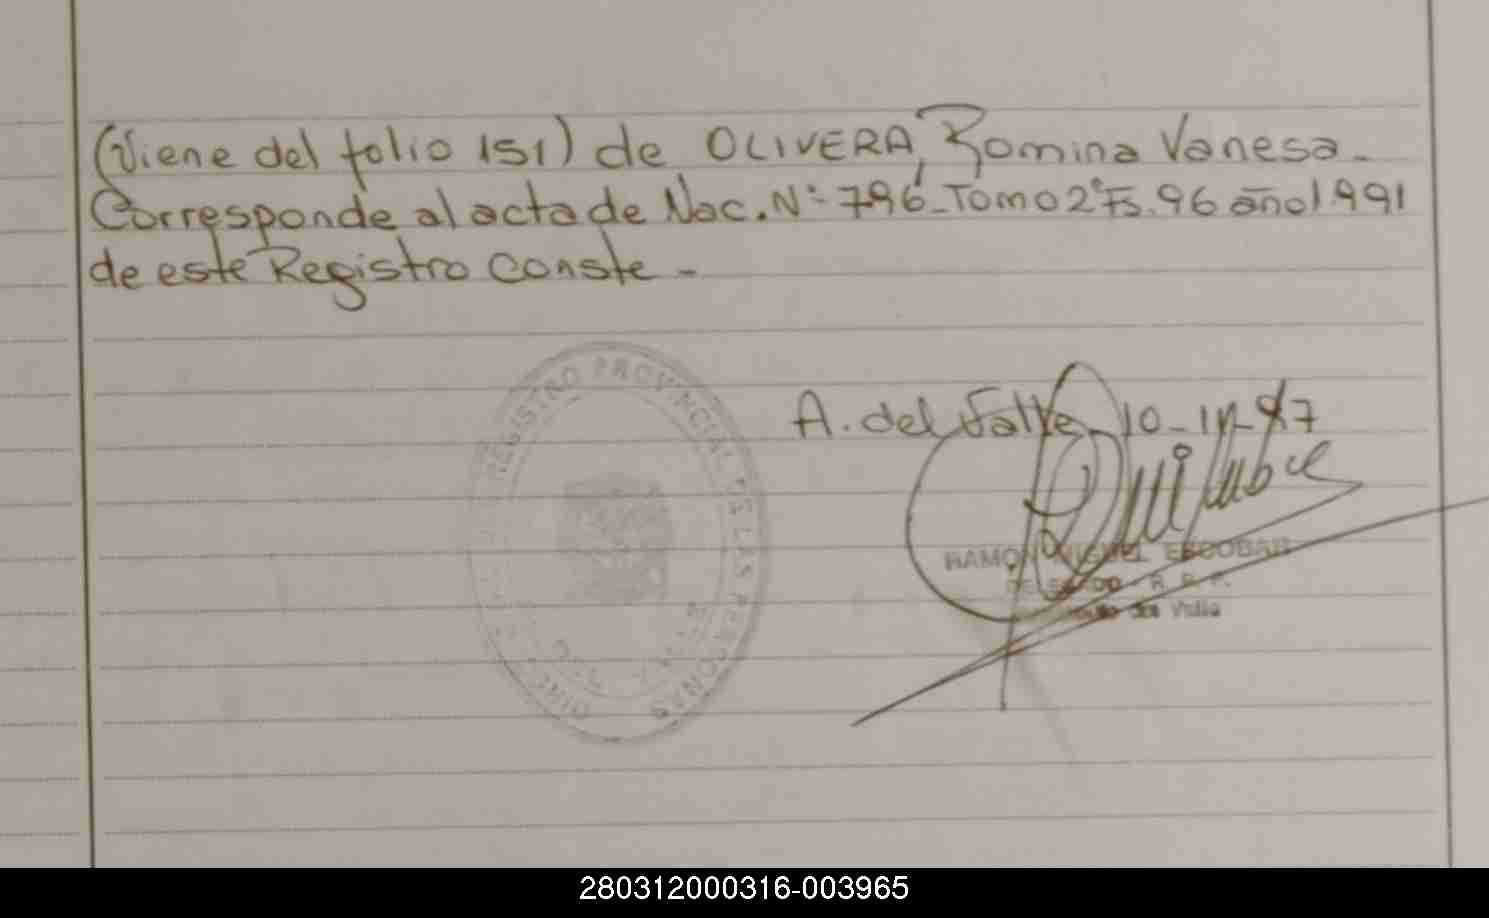 (Viene del folio 151) de OLIVERA, Romina Vanesa.-
Corresponde al acta de Nac. Nº 796 - Tomo 2º Fs. 96 año 1.991
de este Registro Conste -
REGISTRO PROVINCIAL DE LAS PERSONAS
A. del Valle 10-
RAMON MIGUEL ESCOBAR
DELEGADO - R. P. P.
del Valle
280312000316-003965